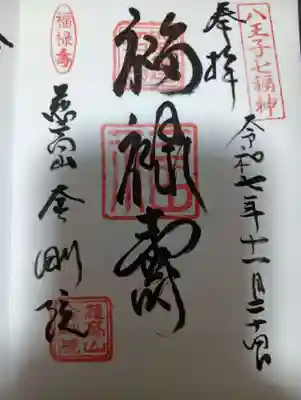 八王子七福神
奉拝
令和七年十一月二十四日
福禄寿
福禄寿
慈高山 金剛院